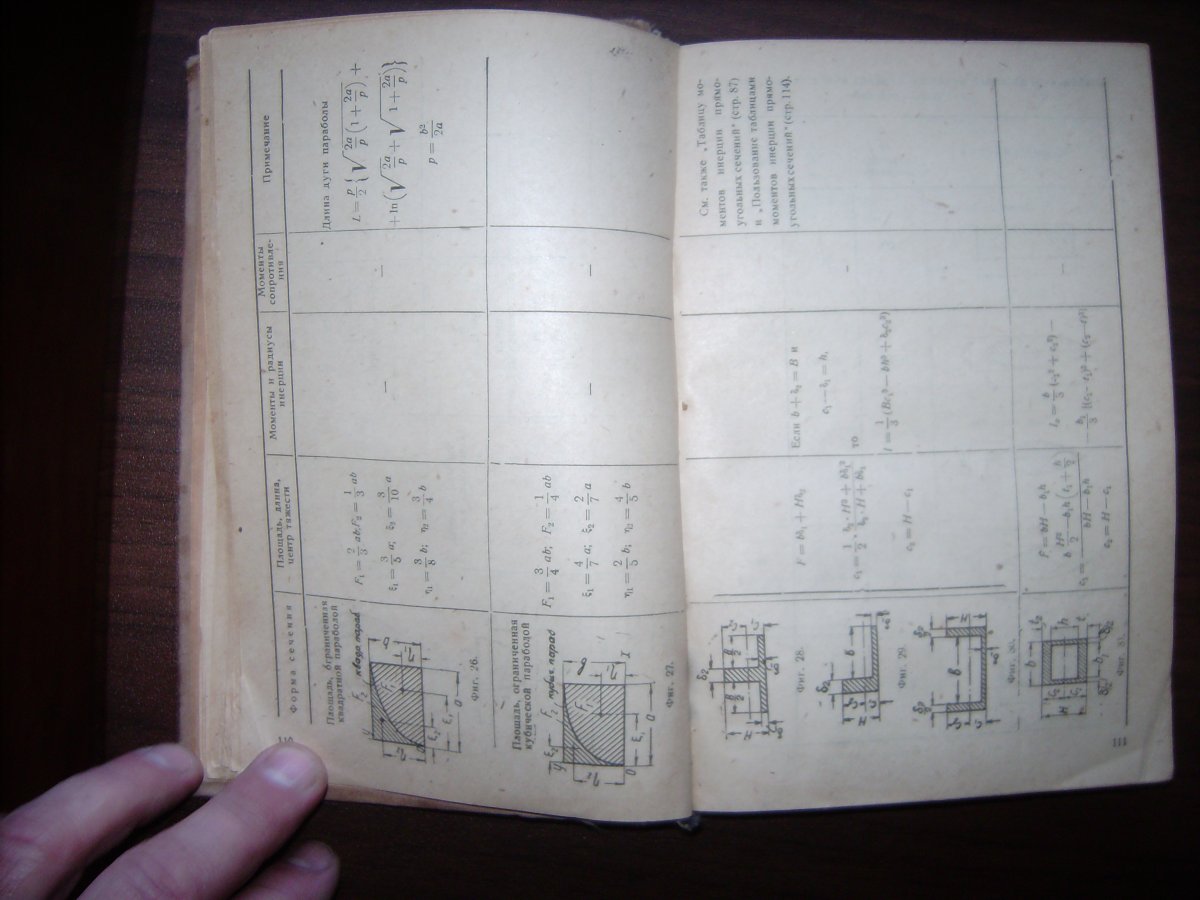 110
Форма сечения
Площадь, длина,
центр тяжести
Моменты и радиусы
инерции
Моменты
сопротивле-
ния
Примечание
Площадь, ограниченная
квадратной параболой
F₂ квадр. параб
F₁
Фиг. 26.
F₁ = 2/3 ab; F₂ = 1/3 ab
ξ₁ = 3/5 a; ξ₂ = 3/10 a
η₁ = 3/8 b; η₂ = 3/4 b
—
—
Длина дуги параболы
L = p/2 {√(2a/p (1 + 2a/p)) +
+ ln(√(2a/p) + √(1 + 2a/p))}
p = b²/2a
Площадь, ограниченная
кубической параболой
F₂ кубич. параб
F₁
Фиг. 27.
F₁ = 3/4 ab; F₂ = 1/4 ab
ξ₁ = 4/7 a; ξ₂ = 2/7 a
η₁ = 2/5 b; η₂ = 4/5 b
—
—
Фиг. 28.
Фиг. 29.
Фиг. 30.
F = bδ₁ + Hδ₂
e₂ = H − e₁
Если b + δ₂ = B и
e₁ − δ₁ = h,
то
I = 1/3 (Be₁³ − bh³ + δ₂e₂³)
—
См. также „Таблицу мо-
ментов инерции прямо-
угольных сечений“ (стр. 87)
и „Пользование таблицами
моментов инерции прямо-
угольных сечений“ (стр. 114).
Фиг. 31.
F = bH − b₁h
e₂ = H − e₁
—
111